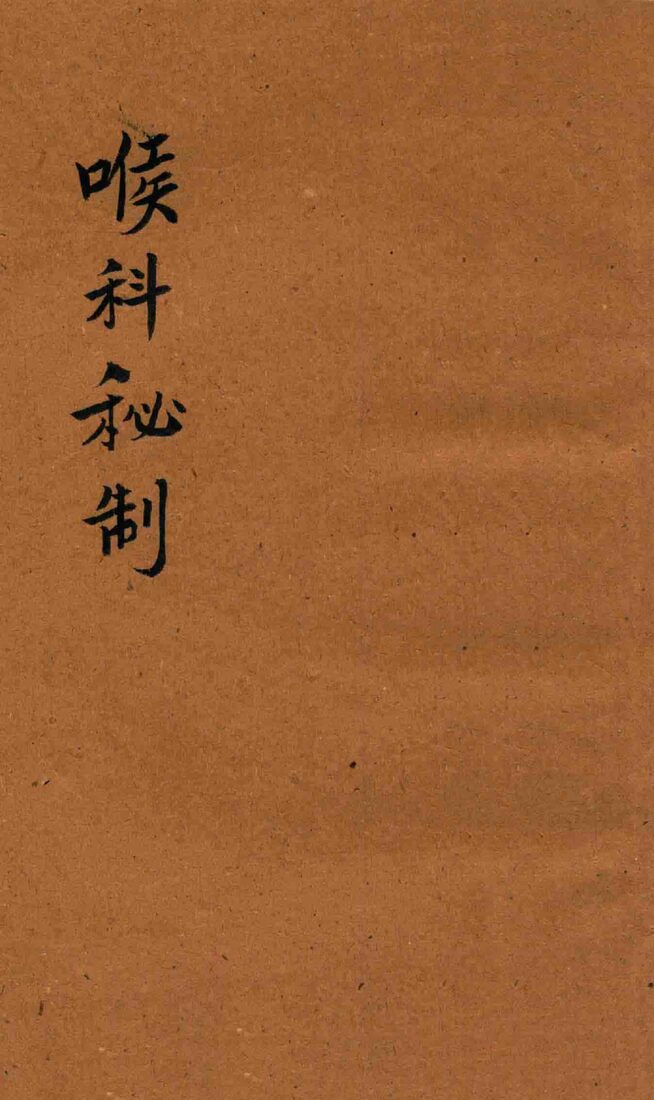 喉科秘制